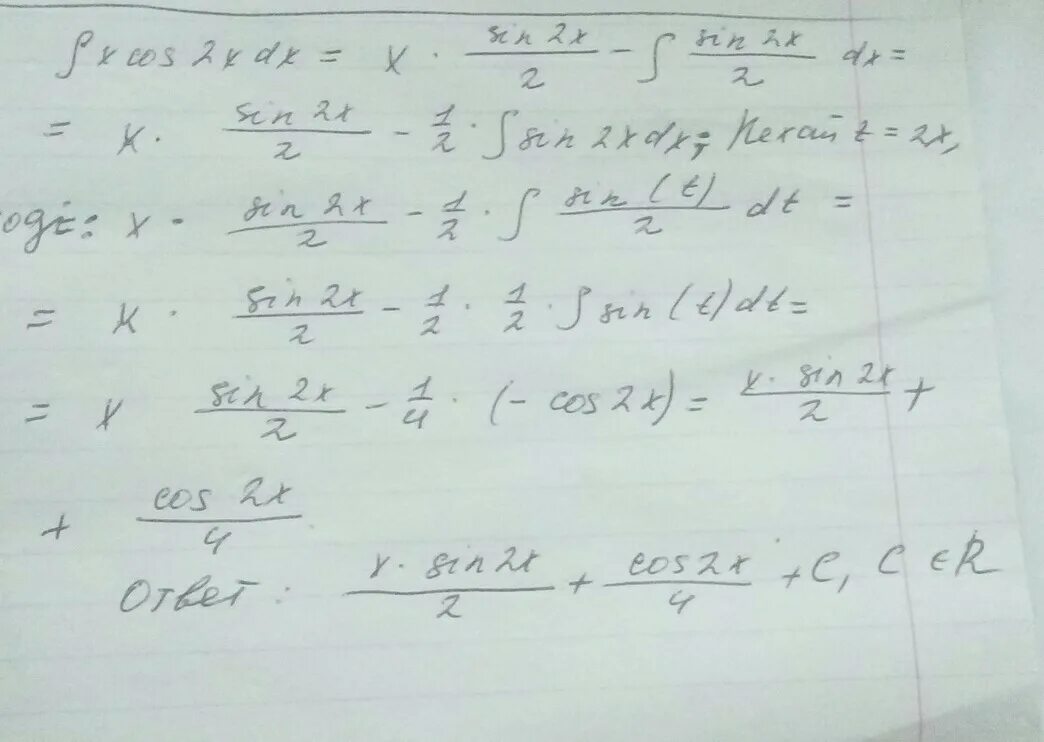 ∫ x cos 2x dx = x · sin 2x / 2 − ∫ sin 2x / 2 dx =
= x · sin 2x / 2 − 1/2 · ∫ sin 2x dx; Нехай t = 2x,
оді: x · sin 2x / 2 − 1/2 · ∫ sin (t) / 2 dt =
= x · sin 2x / 2 − 1/2 · 1/2 · ∫ sin (t) dt =
= x sin 2x / 2 − 1/4 · (− cos 2x) = x · sin 2x / 2 +
+ cos 2x / 4
Ответ: x · sin 2x / 2 + cos 2x / 4 + C, C ∈ R